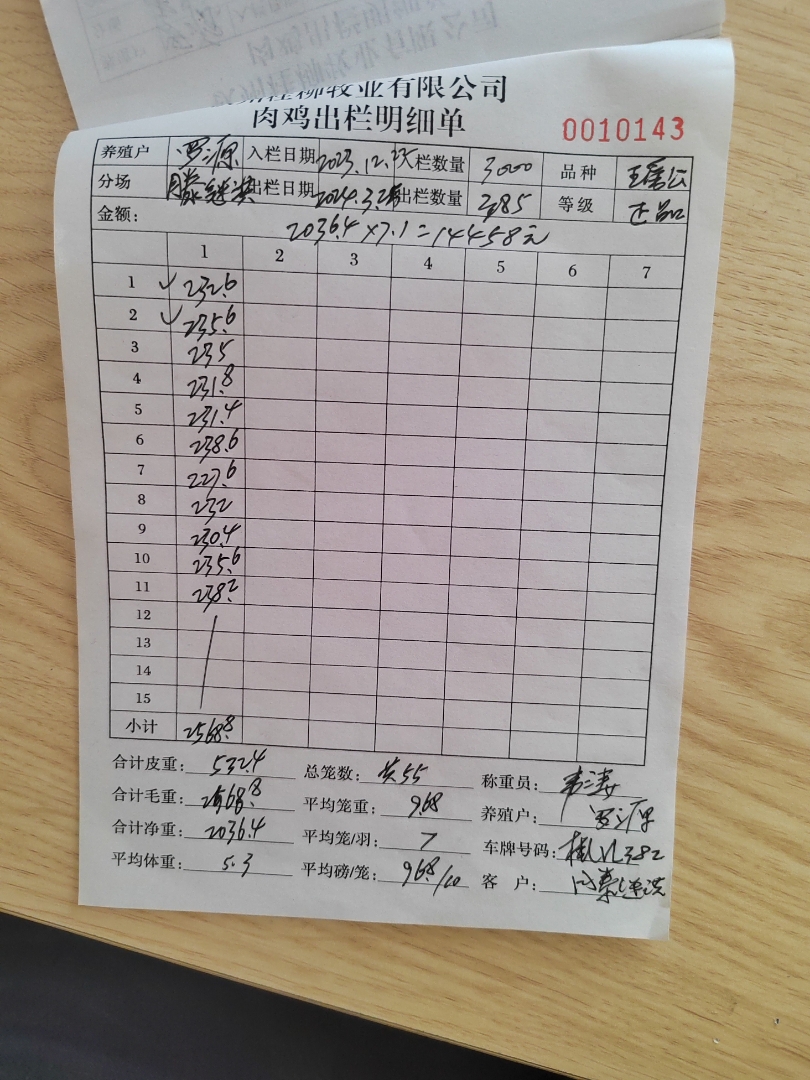 牧业有限公司
肉鸡出栏明细单
0010143
养殖户 罗源 入栏日期 2023.12. 栏数量 3000 品种 瑶公
分场 出栏日期 2024.3. 出栏数量 385 等级 正品
金额: 2036.4×7.1=14458元
1 2 3 4 5 6 7
1 ✓ 232.6
2 ✓ 235.6
3 235
4 231.8
5 231.4
6 238.6
7 227.6
8 232
9 230.4
10 235.6
11 238.2
12
13
14
15
小计 2568.8
合计皮重: 532.4 总笼数: 共55 称重员:
合计毛重: 2568.8 平均笼重: 9.68 养殖户: 罗源
合计净重: 2036.4 平均笼/羽: 7 车牌号码: 382
平均体重: 5.3 平均磅/笼: 96.8/10 客 户: